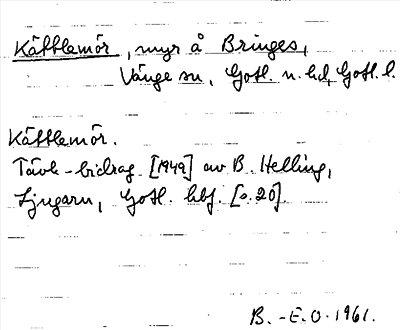 Kättlemör, myr å Bringes,
Vänge sn, Gotl. n. hd, Gotl. l.
Kättlemör.
Tävl.-bidrag [1949] av B. Helling,
Ljugarn, Gotl. hbf. [s. 20].
B.-E.O. 1961.